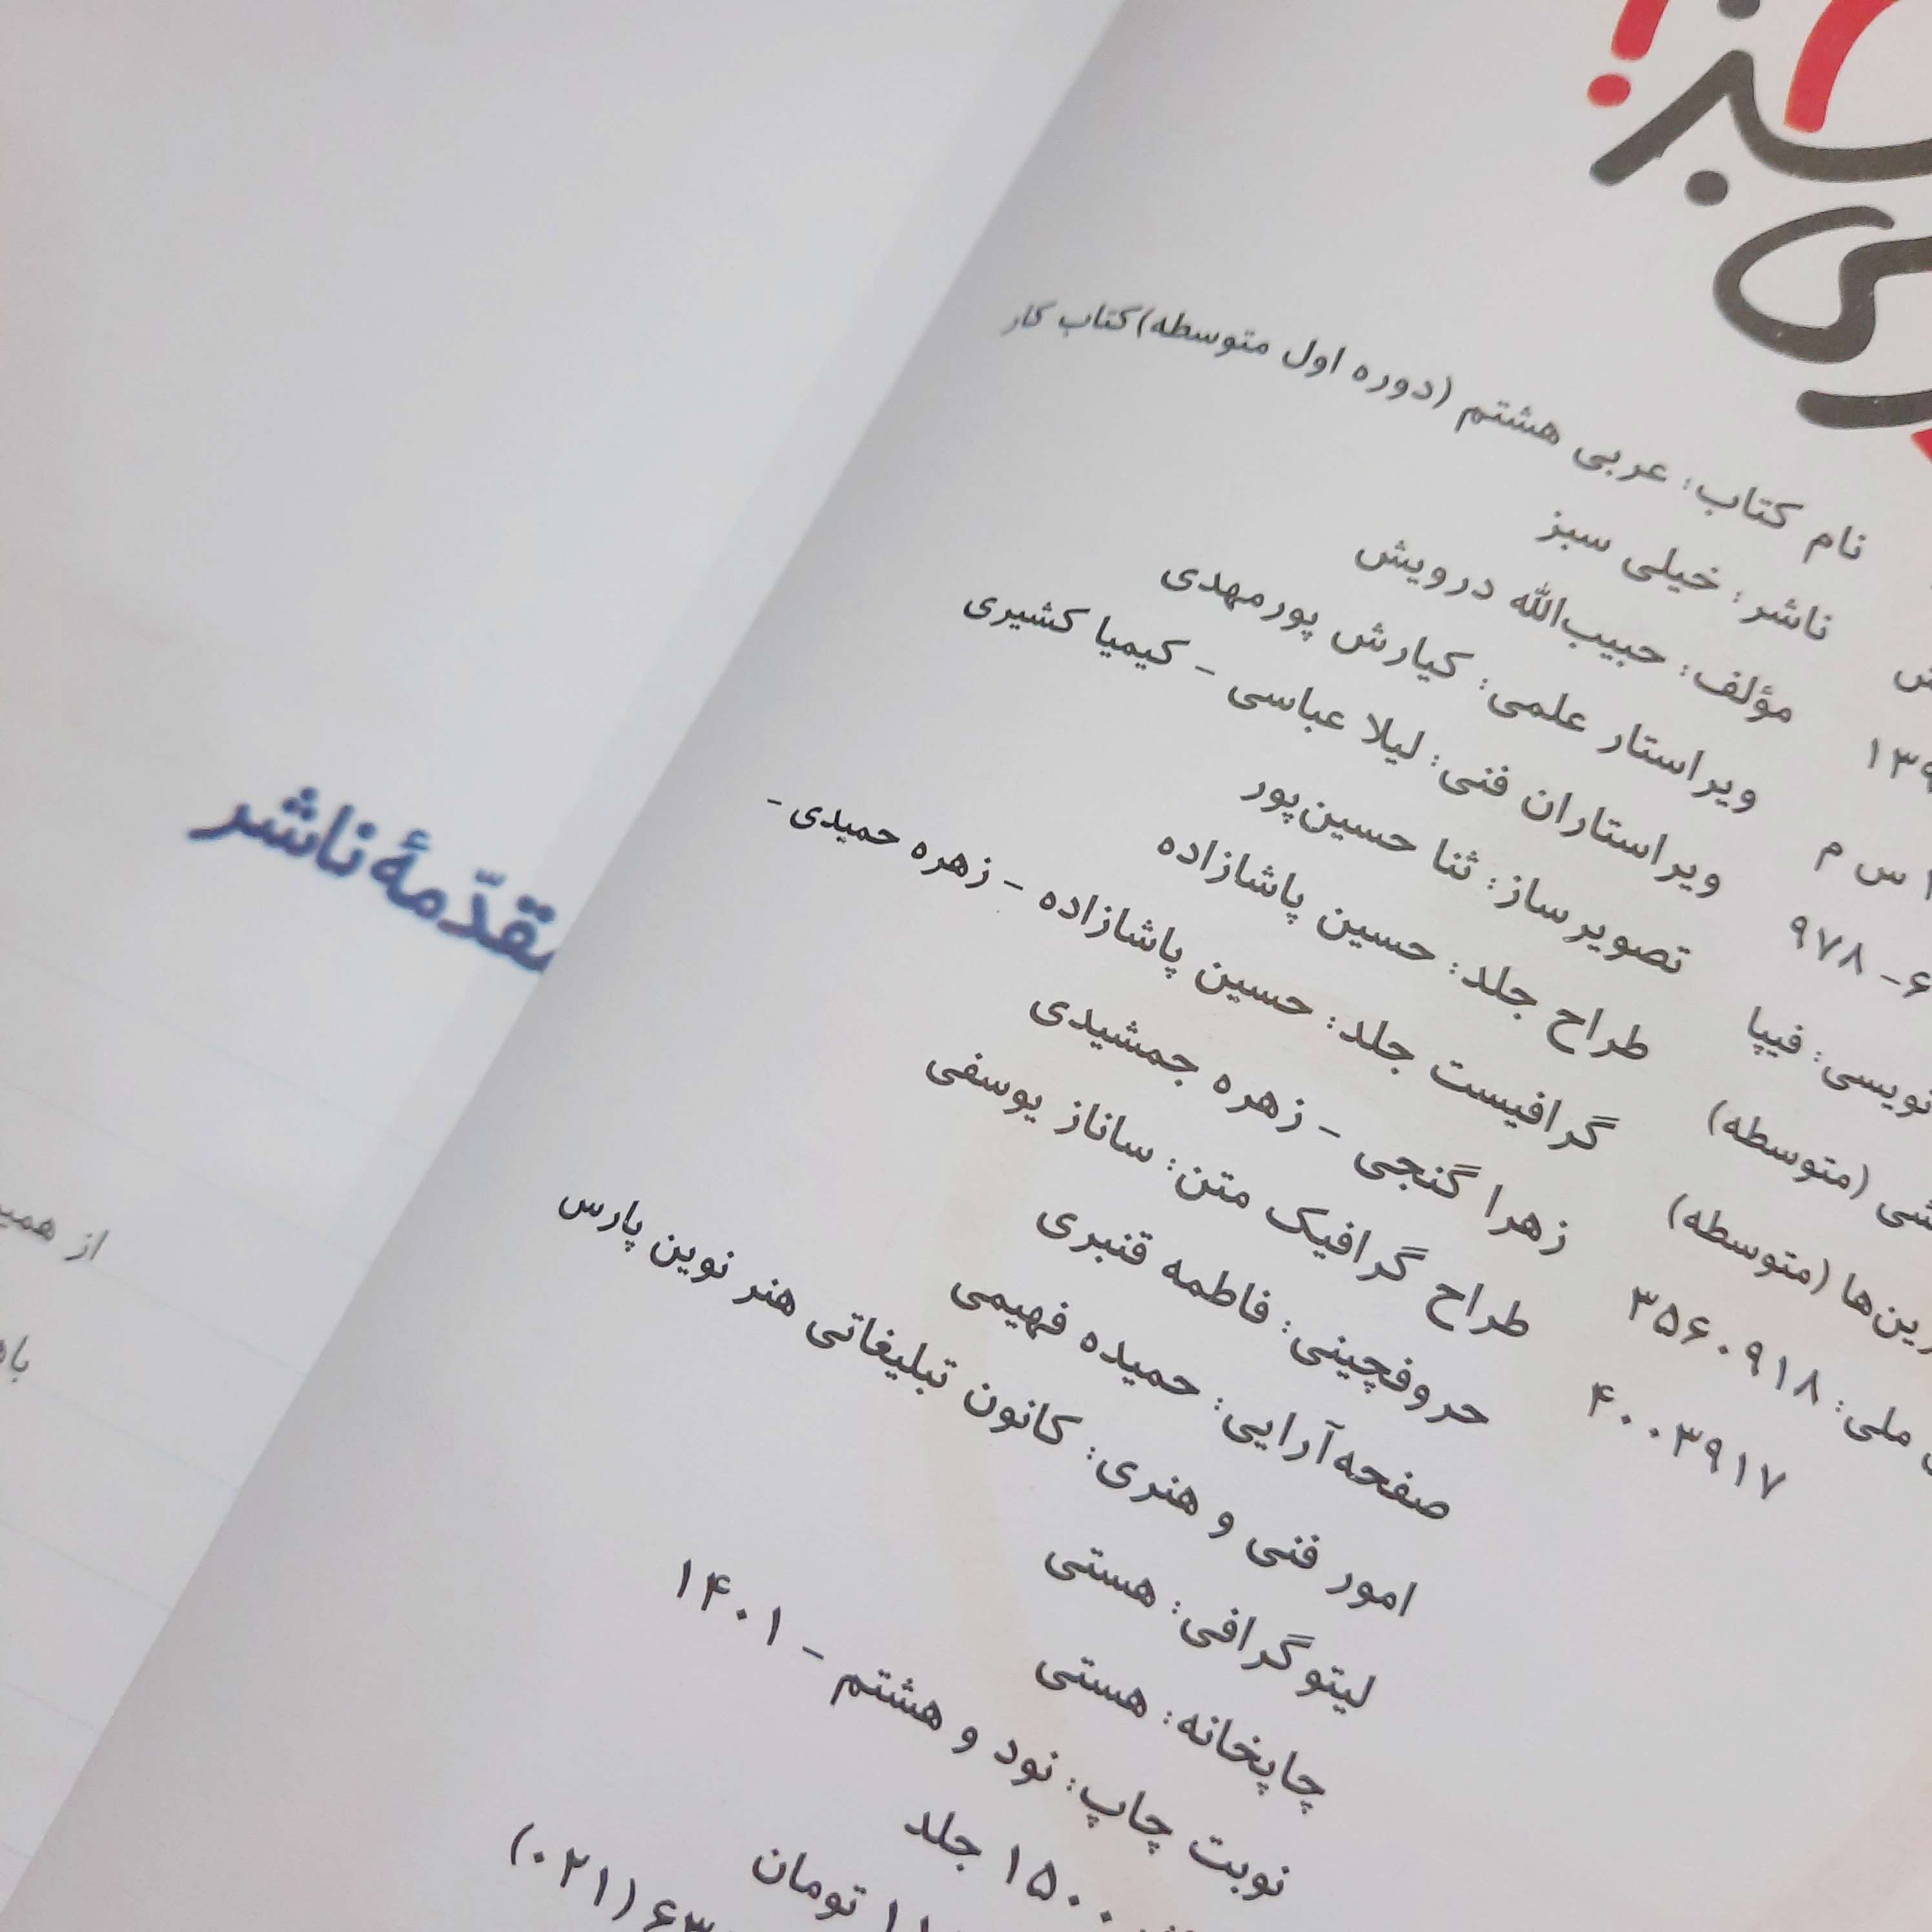 نام کتاب: عربی هشتم (دوره اول متوسطه) کتاب کار
ناشر: خیلی سبز
مؤلف: حبیب‌الله درویش
ویراستار علمی: کیارش پورمهدی
ویراستاران فنی: لیلا عباسی - کیمیا کشیری
تصویرساز: ثنا حسین‌پور
طراح جلد: حسین پاشازاده
گرافیست جلد: حسین پاشازاده - زهره حمیدی -
زهرا گنجی - زهره جمشیدی
طراح گرافیک متن: ساناز یوسفی
حروفچینی: فاطمه قنبری
صفحه‌آرایی: حمیده فهیمی
امور فنی و هنری: کانون تبلیغاتی هنر نوین پارس
لیتوگرافی: هستی
چاپخانه: هستی
نوبت چاپ: نود و هشتم - ۱۴۰۱
۱۵۰۰ جلد
تومان
(۰۲۱)
س م
۹۷۸ -
نویسی: فیپا
(متوسطه)
(متوسطه)
ملی: ۳۵۶۰۹۱۸
۴۰۰۳۹۱۷
مقدّمهٔ ناشر
از